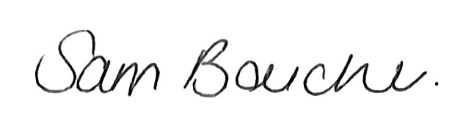 Sam Bouche.